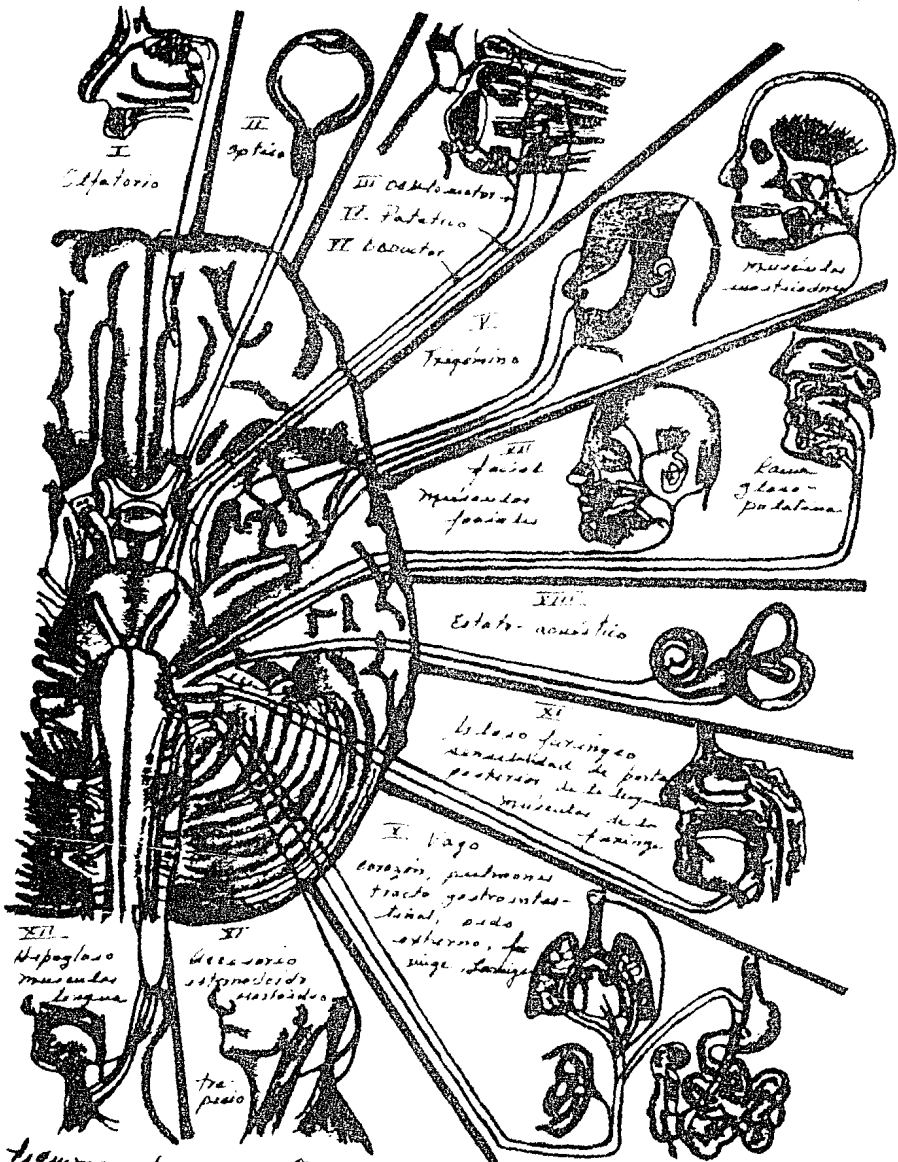 I
Olfatorio
II
óptico
III Oculomotor
IV. Patético
VI Abductor
V
Trigémino
músculos
masticadores
VII
facial
músculos
faciales
Rama
gloso-
palatina
VIII
Estato-acústico
IX
Gloso faríngeo
sensibilidad de parte
posterior de la lengua
músculos de la
faringe
X. Vago
corazón, pulmones
tracto gastrointes-
tinal, oído
externo, fa
ringe
XII
Hipogloso
musculos
lengua
XI
Accesorio
esternocleido
mastoideo
tra
pecio